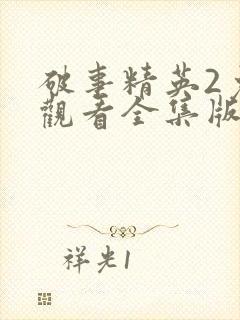 破事精英2
觀看全集版
祥光1